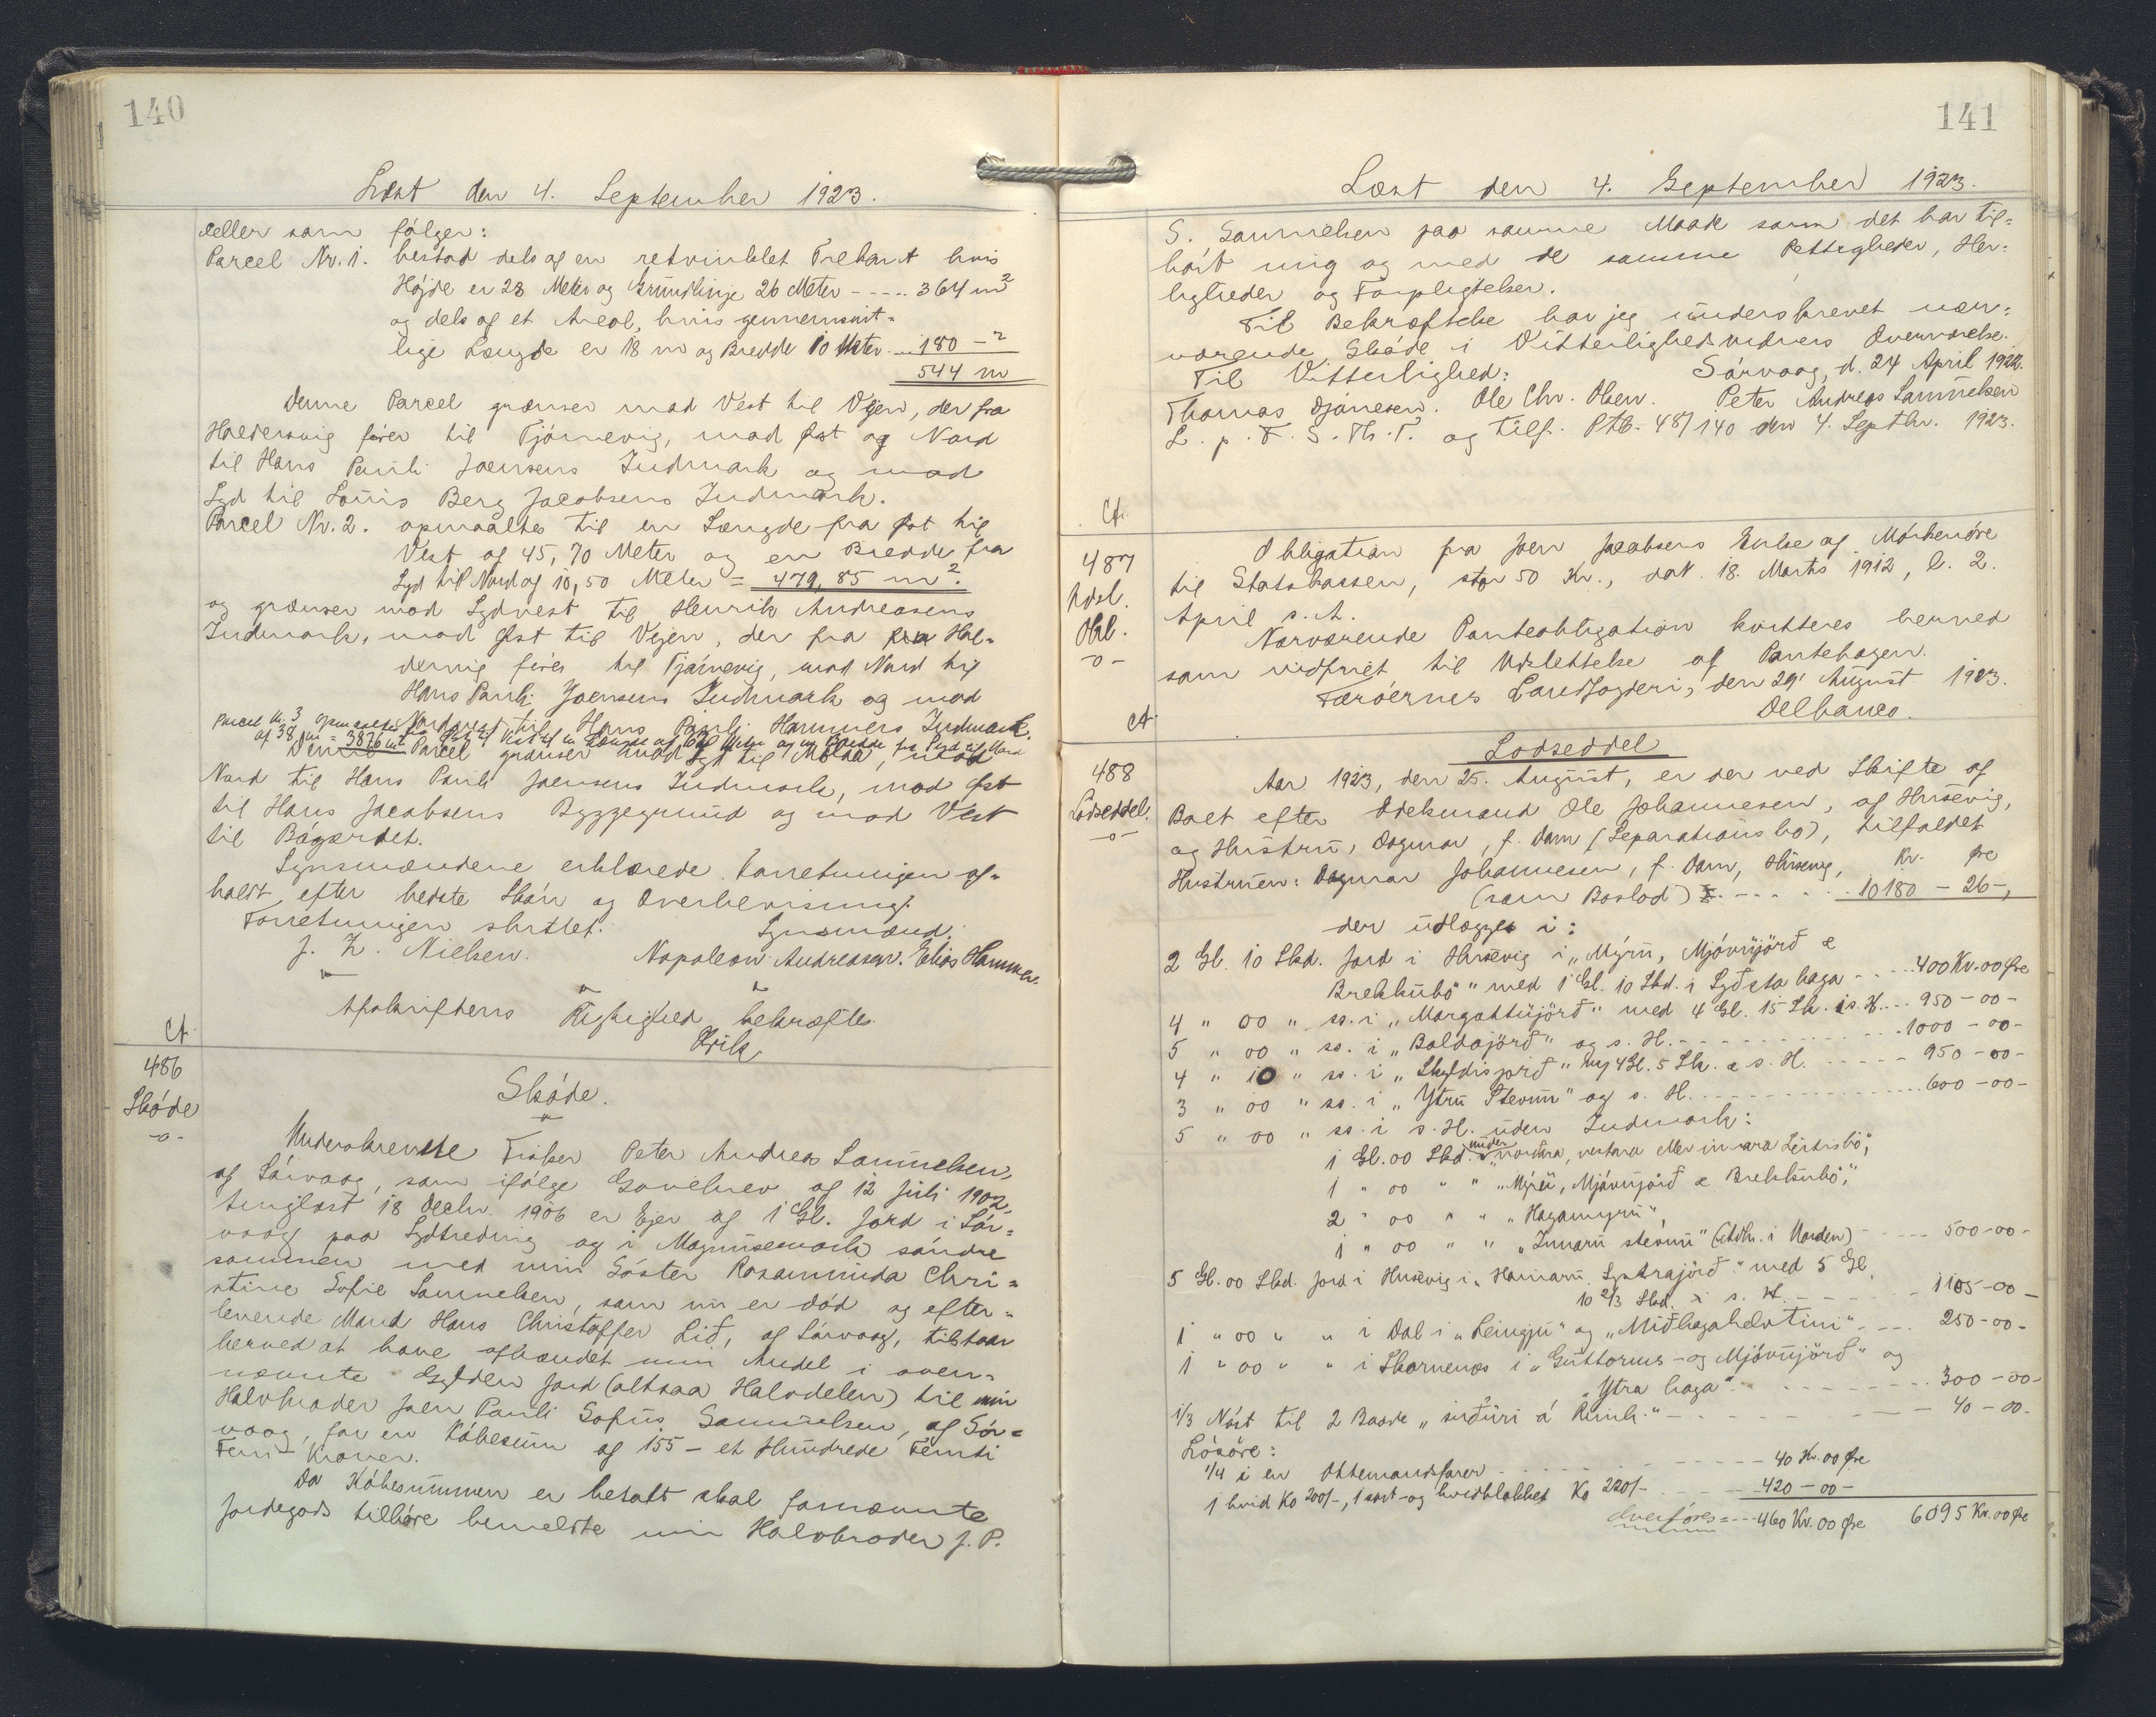 140
Læst den 4. September 1923.
celler som følger:
Parcel Nr. 1. bestod dels af en retvinklet Trekant hvis
Højde er 28 Meter og Grundlinje 26 Meter - - - - 364 m²
og dels af et Areal, hvis gennemsnit=
lige Længde er 18 m og Bredde 10 Meter . . 180 - ²
544 m
Denne Parcel grænser mod Vest til Vejen, der fra
Haldersvig fører til Tjørnevig, mod Øst og Nord
til Hans Pauli Joensens Indmark og mod
Syd til Louis Berg Jacobsens Indmark.
Parcel Nr. 2. opmaaltes til en Længde fra Øst til
Vest af 45,70 Meter og en Bredde fra
Syd til Nord af 10,50 Meter = 479,85 m².
og grænser mod Sydvest til Henrik Andreasens
Indmark, mod Øst til Vejen, der fra Hal=
dersvig fører til Tjørnevig, mod Nord til
Hans Pauli Joensens Indmark og mod
Nordvest til Hans Pauli Hammers Indmark.
Parcel Nr. 3 opmaaltes fra Øst til Vest til en Længde af 102 Meter og en Bredde fra Syd til Nord
af 38 m = 3876 m²
Denne Parcel grænser mod Syd til Mølaa, mod
Nord til Hans Pauli Joensens Indmark, mod Øst
til Hans Jacobsens Byggegrund og mod Vest
til Bøgærdet.
Synsmændene erklærede Forretningen af=
holdt efter bedste Skøn og Overbevisning.
Forretningen sluttet.
Synsmænd:
J. K. Nielsen. Napoleon Andreasen. Elias Hammer.
Afskriftens Rigtighed bekræftes.
Krik
Ct.
486
Skøde
-o-
Skøde.
Underskrevne Fisker Peter Andreas Samuelsen,
af Sørvaag, som ifølge Gavebrev af 12 Juli 1902,
tinglæst 18 Decbr. 1906 er Ejer af 1 Gl. Jord i Sør=
vaag paa Sydtreding og i Magnusemark søndre
sammen med min Søster Rosamunda Chri=
stine Sofie Samuelsen, som nu er død og efter=
levende Mand Hans Christoffer Lið, af Sørvaag, tilstaar
herved at have afhændet min Andel i oven=
nævnte Gylden Jord (altsaa Halvdelen) til min
Halvbroder Joen Pauli Sofus Samuelsen, af Sør=
vaag, for en Købesum af 155 - et Hundrede Femti
Fem - Kroner.
Da Købesummen er betalt skal fornævnte
Jordegods tilhøre bemeldte min Halvbroder J. P.
141
Læst den 4. September 1923.
S. Samuelsen paa samme Maade som det har til=
hørt mig og med de samme Rettigheder, Her=
ligheder og Forpligtelser.
Til Bekræftelse har jeg underskrevet nær=
værende Skøde i Vitterlighedsvidners Overværelse.
Til Vitterlighed: Sørvaag, d. 24 April 1922.
Thomas Djónesen. Ole Chr. Olsen. Peter Andreas Samuelsen
L. p. F. S. Th. T. og tilf. Ptb. 48/140 den 4. Septbr. 1923.
Ct.
487
Udsl.
Obl.
-o-
Obligation fra Joen Jacobsens Enke af Mørkenøre
til Statskassen, stor 50 Kr., dat. 18. Marts 1912, l. 2.
April s. A.
Nærværende Panteobligation kvitteres herved
som indfriet til Udslettelse af Pantebogen.
Færøernes Landfogderi, den 29' August 1923.
Delbanco.
Ct.
488
Lodseddel.
-o-
Lodseddel
Aar 1923, den 25. August, er der ved Skifte af
Boet efter Odelsmand Ole Johannesen, af Husevig,
og Hustru, Dagmar, f. Dam (Separationsbo), tilfaldet
Hustruen: Dagmar Johannesen, f. Dam, Husevig, Kr. Øre
(som Boslod) . - - - - 10180 - 26-,
der udlægges i:
2 Gl. 10 Skd. Jord i Husevig i „Mýru, Mjóvujørð &
Brekkubø" med 1 Gl. 10 Skd. i Syðsta haga - - - - 400 Kr. 00 Øre
4 " 00 " ss. i „Margattujørð" med 4 Gl. 15 Sk. i s. H. - - 950 - 00 -
5 " 00 " ss. i „Baldajørð" og s. H. - - - - 1000 - 00 -
4 " 10 " ss. i „Skyldisjørð" m/ 4 Gl. 5 Sk. & s. H. - - - - 950 - 00 -
3 " 00 " ss. i „Ytru Stevnu" og s. H. - - - - 600 - 00 -
5 " 00 " ss. i s. H. uden Indmark:
1 Gl. 00 Skd. under „norðara, vestara eller innara Leitisbø",
1 " 00 " " „Mýru, Mjóvujørð & Brekkubø",
2 " 00 " " „Hagamyru",
1 " 00 " " „Innaru stevnu" - - - 500 - 00 -
5 Gl. 00 Skd. Jord i Husevig i „Hamaru Systrajørð" med 5 Gl.
10 2/3 Skd. i s. H. - - - - 1105 - 00 -
1 " 00 " " i Dal i „Leingju" og „Miðhagahelvtini" - - - 250 - 00 -
1 " 00 " " i Skarvenæs i „Guttorms- og Mjóvujørð" og
„Ytra haga" - - - - 300 - 00 -
1/3 Nøst til 2 Baade „suðuri á " - - - - 40 - 00 -
Løsøre:
1/4 i en Ottemandsfarer - - - - 40 Kr. 00 Øre
1 hvid Ko 200/-, 1 sort- og hvidblakket Ko 220/- - - - 420 - 00 -
Overføres - - - 460 Kr. 00 Øre 6095 Kr. 00 Øre